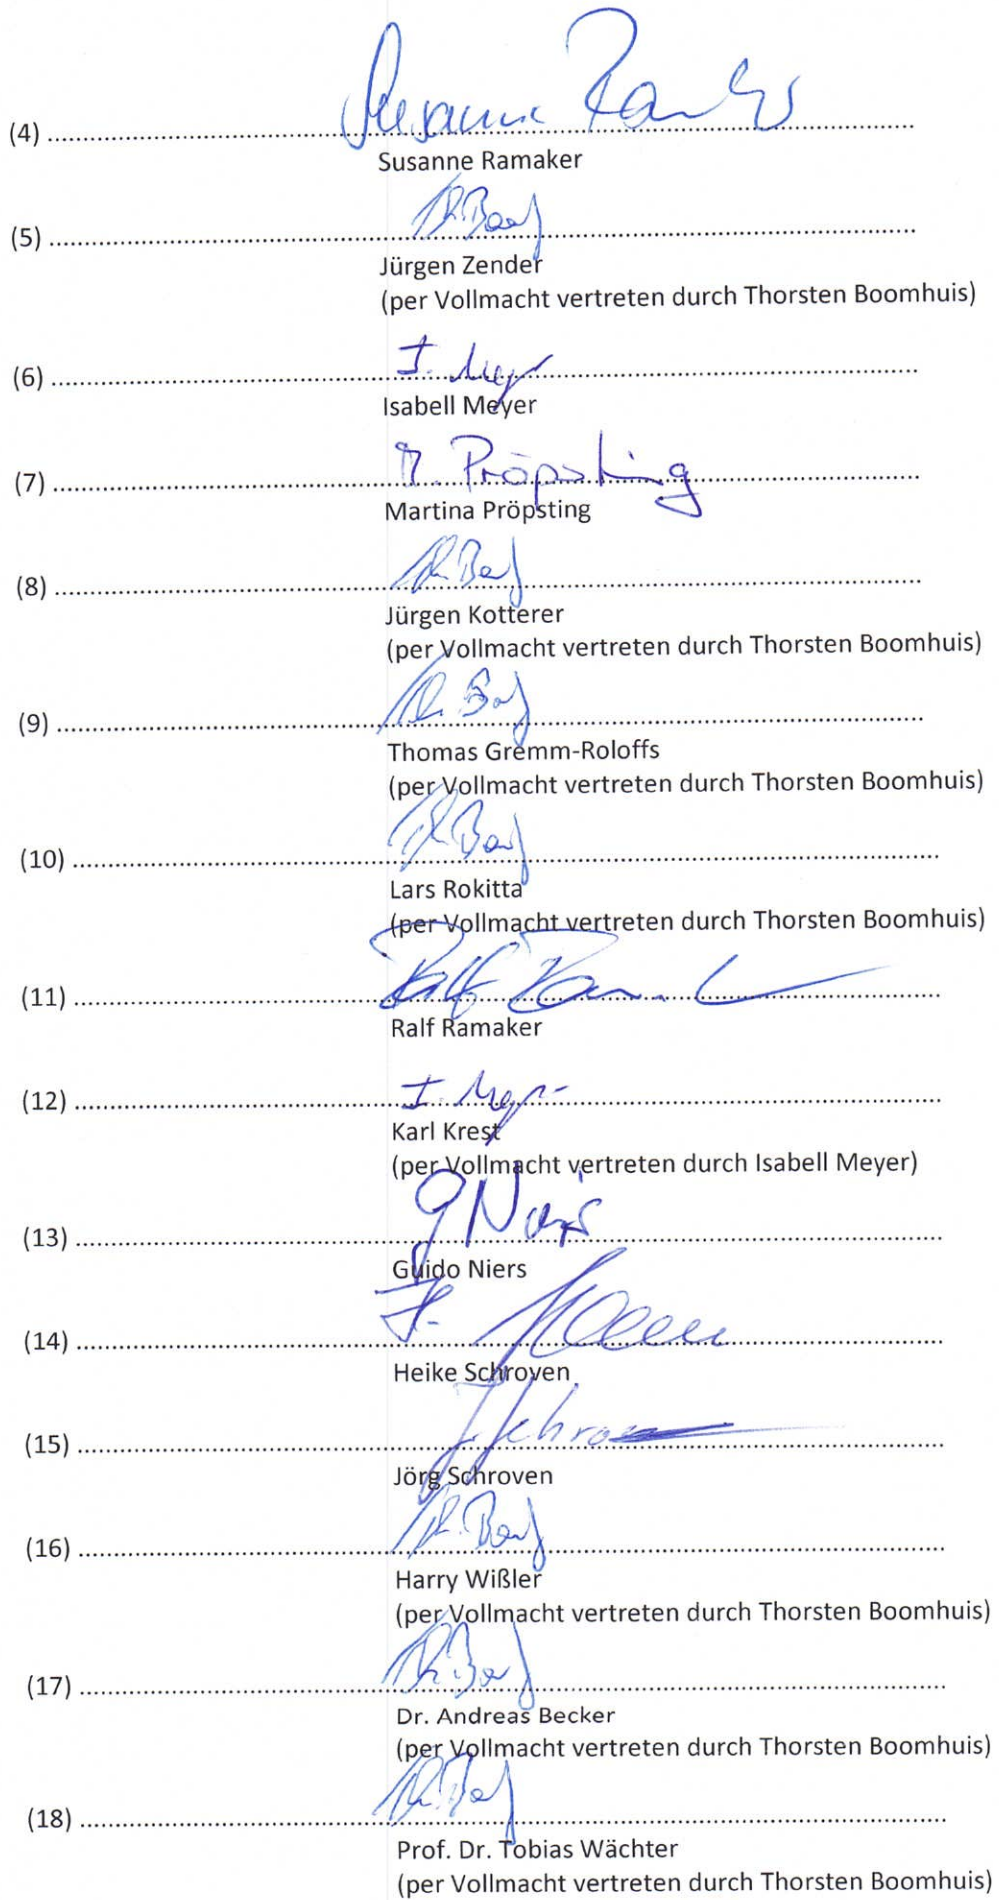 Susanne Ramaker
(4) ........................................................
Susanne Ramaker
(5) ........................................................
Jürgen Zender
(per Vollmacht vertreten durch Thorsten Boomhuis)
I. Meyer
(6) ........................................................
Isabell Meyer
M. Pröpsting
(7) ........................................................
Martina Pröpsting
(8) ........................................................
Jürgen Kotterer
(per Vollmacht vertreten durch Thorsten Boomhuis)
(9) ........................................................
Thomas Gremm-Roloffs
(per Vollmacht vertreten durch Thorsten Boomhuis)
(10) ........................................................
Lars Rokitta
(per Vollmacht vertreten durch Thorsten Boomhuis)
Ralf
(11) ........................................................
Ralf Ramaker
I. Meyer
(12) ........................................................
Karl Krest
(per Vollmacht vertreten durch Isabell Meyer)
G Niers
(13) ........................................................
Guido Niers
(14) ........................................................
Heike Schroven
(15) ........................................................
Jörg Schroven
(16) ........................................................
Harry Wißler
(per Vollmacht vertreten durch Thorsten Boomhuis)
(17) ........................................................
Dr. Andreas Becker
(per Vollmacht vertreten durch Thorsten Boomhuis)
(18) ........................................................
Prof. Dr. Tobias Wächter
(per Vollmacht vertreten durch Thorsten Boomhuis)